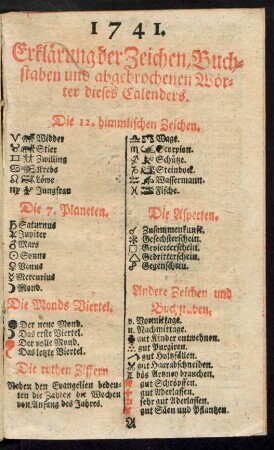 1741.
Erklärung der Zeichen, Buch-
staben und abgebrochenen Wör-
ter dieses Calenders.
Die 12. himmlischen Zeichen.
♈ Widder
♉ Stier
♊ Zwilling
♋ Krebs
♌ Löwe
♍ Jungfrau
♎ Wage.
♏ Scorpion.
♐ Schütze.
♑ Steinbock.
♒ Wassermann.
♓ Fische.
Die 7. Planeten.
♄ Saturnus
♃ Jupiter
♂ Mars
☉ Sonne
♀ Venus
☿ Mercurius
☽ Mond.
Die Monds Viertel.
Der neue Mond.
Das erste Viertel.
Der volle Mond.
Das letzte Viertel.
Die rothen Ziffern
Neben den Evangelien bedeu-
ten die Zahlen die Wochen
von Anfang des Jahres.
Die Aspecten.
☌ Zusammenkunft.
⚹ Gesechsterschein.
□ Gevierterschein.
△ Gedritterschein.
☍ Gegenschein.
Andere Zeichen und
Buchstaben.
v. Vormittage.
n. Nachmittage.
gut Kinder entwehnen.
gut Purgiren.
gut Holtzfällen.
gut Haarabschneiden.
bös Artzney brauchen.
gut Schröpffen.
gut Aderlassen.
sehr gut Aderlassen.
gut Säen und Pflantzen.
A